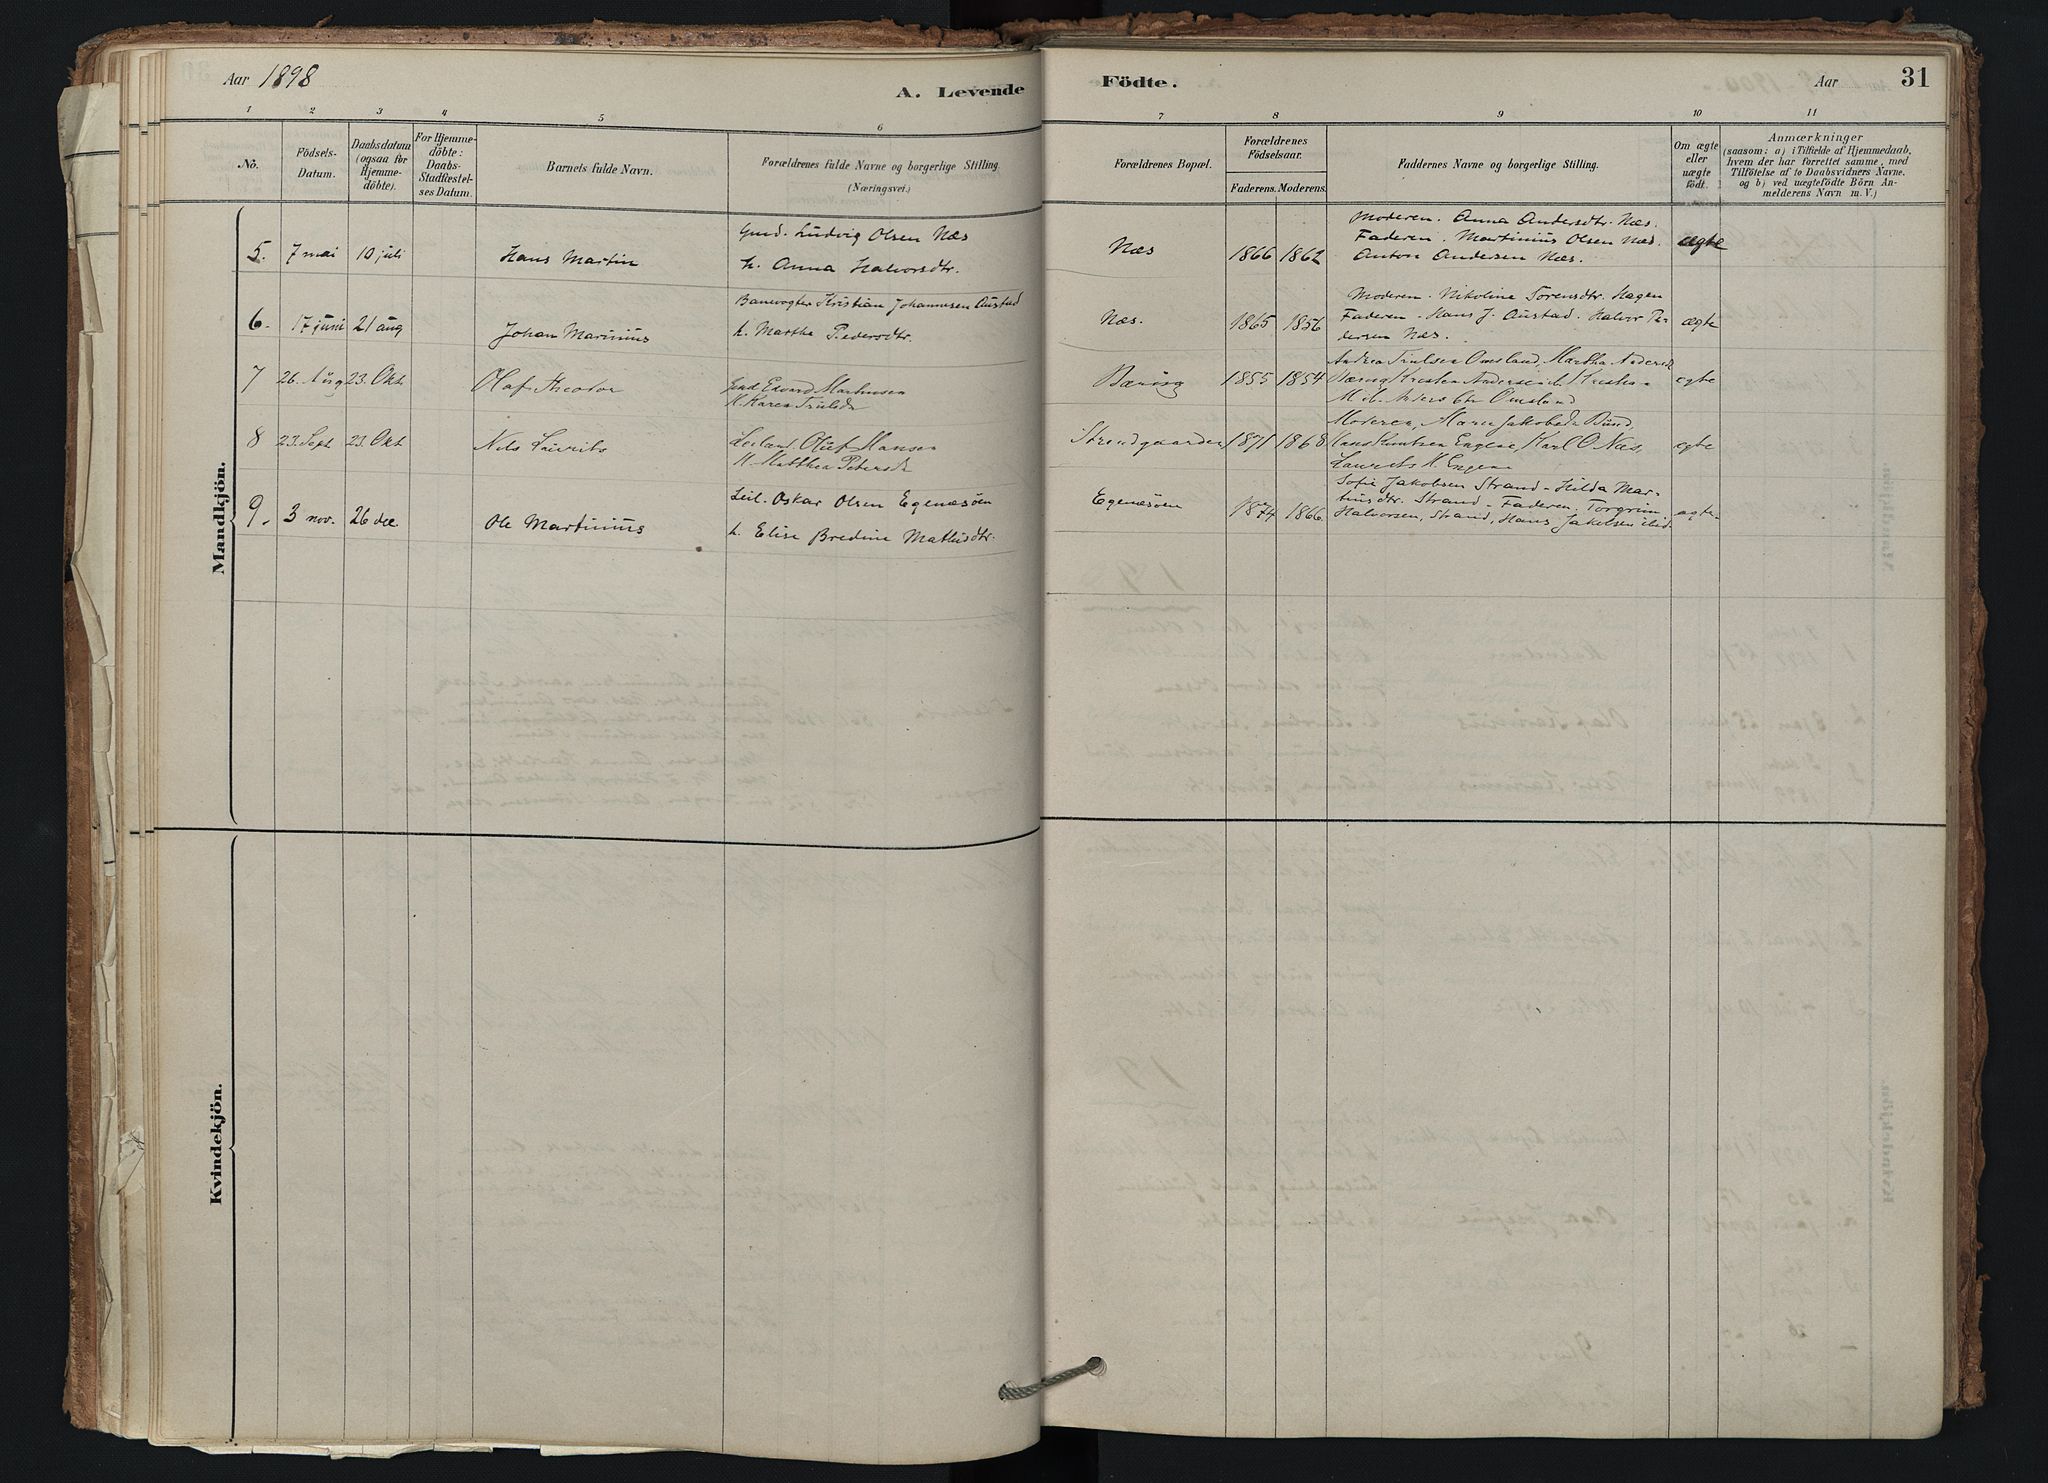 Aar 1898
A. Levende
Födte.
Aar
31
1 2 3 4 5 6 7 8 9 10 11
No.
Födsels-
Datum.
Daabsdatum
(ogsaa for
Hjemme-
döbte).
For Hjemme-
döbte:
Daabs-
Stadfæstel-
ses Datum.
Barnets fulde Navn.
Forældrenes fulde Navne og borgerlige Stilling
(Næringsvei.)
Forældrenes Bopæl.
Forældrenes
Födselsaar.
Faderens. Moderens.
Faddernes Navne og borgerlige Stilling.
Om ægte
eller
uægte
födt.
Anmærkninger
(saasom: a) i Tilfælde af Hjemmedaab,
hvem der har forrettet samme, med
Tilföielse af to Daabsvidners Navne.
og b) ved uægtefödte Börn An-
melderens Navn m. V.)
Mandkjön.
5. 7 mai 10 juli
Hans Martin
Gmd. Ludvig Olsen Næs
h. Anna Halvorsdtr.
Næs
1866 1862
Moderen. Anna Andersdtr. Næs.
Faderen. Martinius Olsen Næs.
Anton Andersen Næs.
ægte
6. 17 juni 21 aug
Johan Marinius
Banevogter Kristian Johannesen Austad
h. Marthe Pedersdtr.
Næs.
1865 1856
Moderen. Nikoline Torensdtr. Hagen
Faderen. Hans J. Austad. Halvor Pe-
dersen Næs.
ægte
7 26. Aug 23. Okt
Olaf Theodor
Gmd Edvard Markusen
H. Karen Trulsdr
1855 1854
Andrea Trulsen Omsland, Martha Andersd
Kresten Andersen
Omsland
egte
8 23. Sept 23. Okt
Nils Laurits
Leiland. Oluf Hansen
H. Matthea Petersd
Strandgaarden
1871 1868
Moderen, Maren Jakobsdr Bund,
Hans Knutsen Engene, Karl O. Næs,
Laurits H. Engene
egte
9. 3 nov. 26 dec
Ole Martinius
Leil. Oskar Olsen Egenæsøen
h. Elise Bredine Mathisdtr.
Egenæsøen
1874 1866.
Sofie Jakobsen Strand - Hilda Mar-
tiusdtr. Strand - Faderen. Torgrim
Halvorsen, Strand, Hans Jakobsen ibid.
ægte
Kvindekjön.